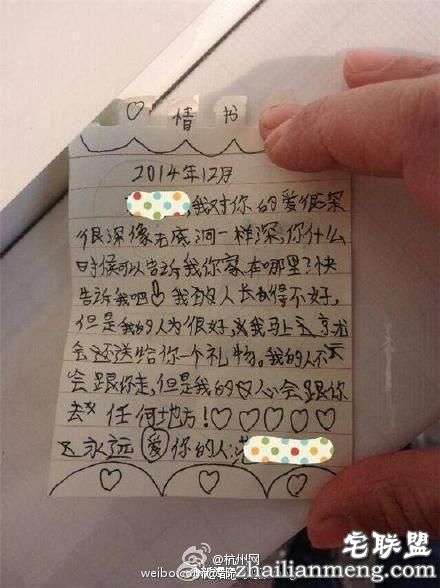 ♡ 情 书
2014年12月
,我对你的爱很深
很深像无底洞一样深,你什么
时候可以告诉我你家在哪里?快
告诉我吧!我人长得不好,
但是我的人为很好,我马上就
会还送给你一个礼物。我的人不
会跟你走,但是我的心会跟你
去任何地方!♡♡♡♡♡
永远爱你的人:
@杭州网
宅联盟
zhailianmeng.com